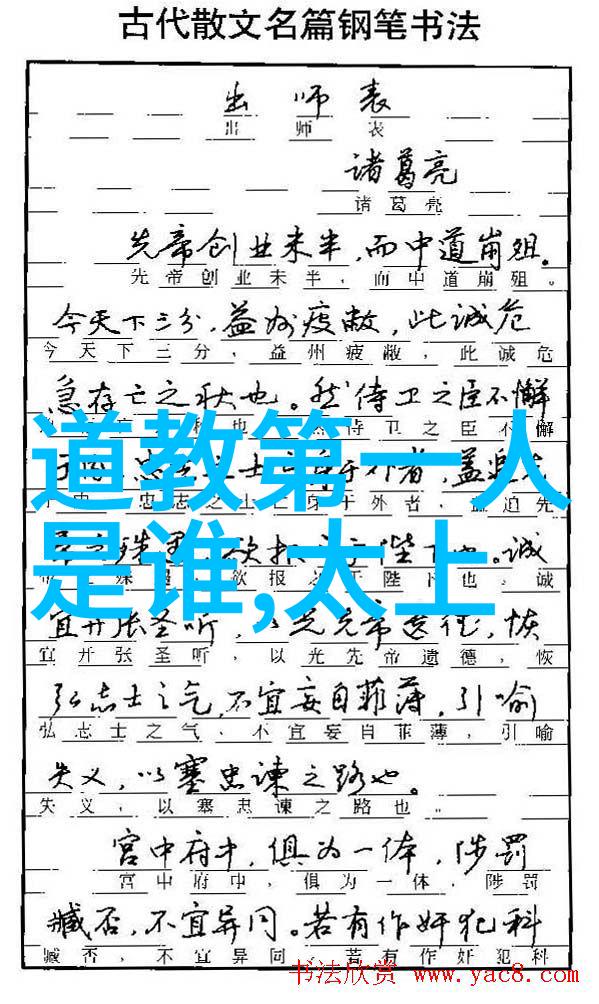 古代散文名篇钢笔书法
出师表
出师表
诸葛亮
诸葛亮
先帝创业未半,而中道崩殂。
先帝创业未半,而中道崩殂。
今天下三分,益州疲敝,此诚危
今天下三分,益州疲敝,此诚危
急存亡之秋也。然侍卫之臣不懈
也 侍卫之臣不懈
道教第一人
外者,盖追先
忠志之士亡身于外者,盖追先
陛下也。诚
殊 欲报之于陛下也。诚
是谁,太上
宜开张圣听,以光先帝遗德,恢
宜开张圣听,以光先帝遗德,恢
弘志士之气,不宜妄自菲薄,引喻
弘志士之气,不宜妄自菲薄,引喻
失义,以塞忠谏之路也。
失义,以塞忠谏之路也。
宫中府中,俱为一体,陟罚
宫中府中,俱为一体,陟罚
臧否,不宜异同。若有作奸犯科
臧否,不宜异同。若有作奸犯科
书法欣赏 www.yac8.com